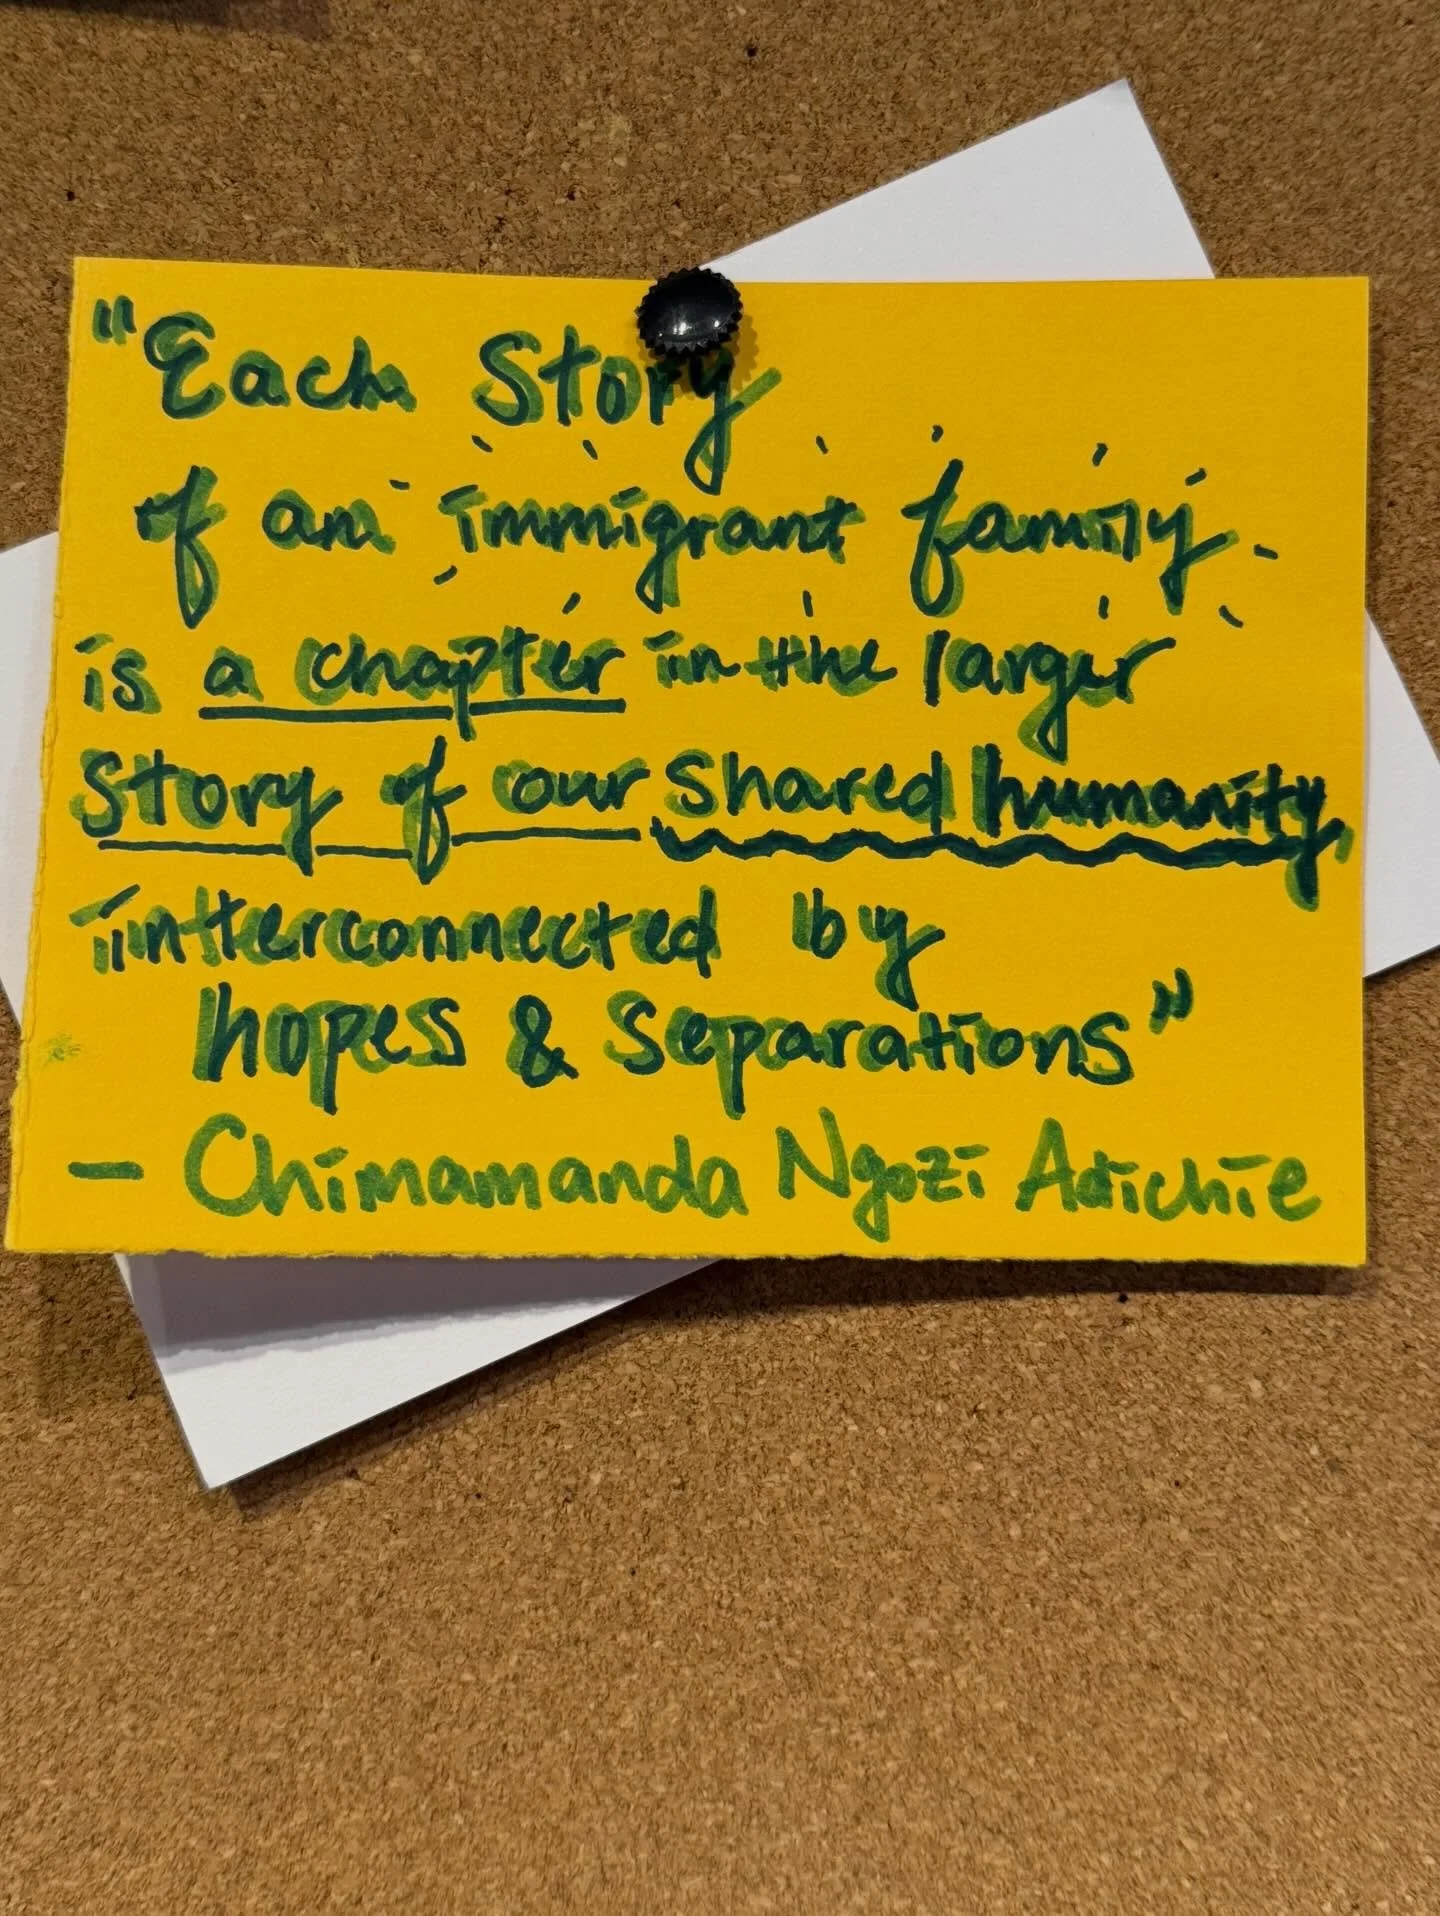 "Each Story
of an immigrant family
is a chapter in the larger
Story of our shared humanity,
interconnected by
hopes & separations"
- Chimamanda Ngozi Adichie